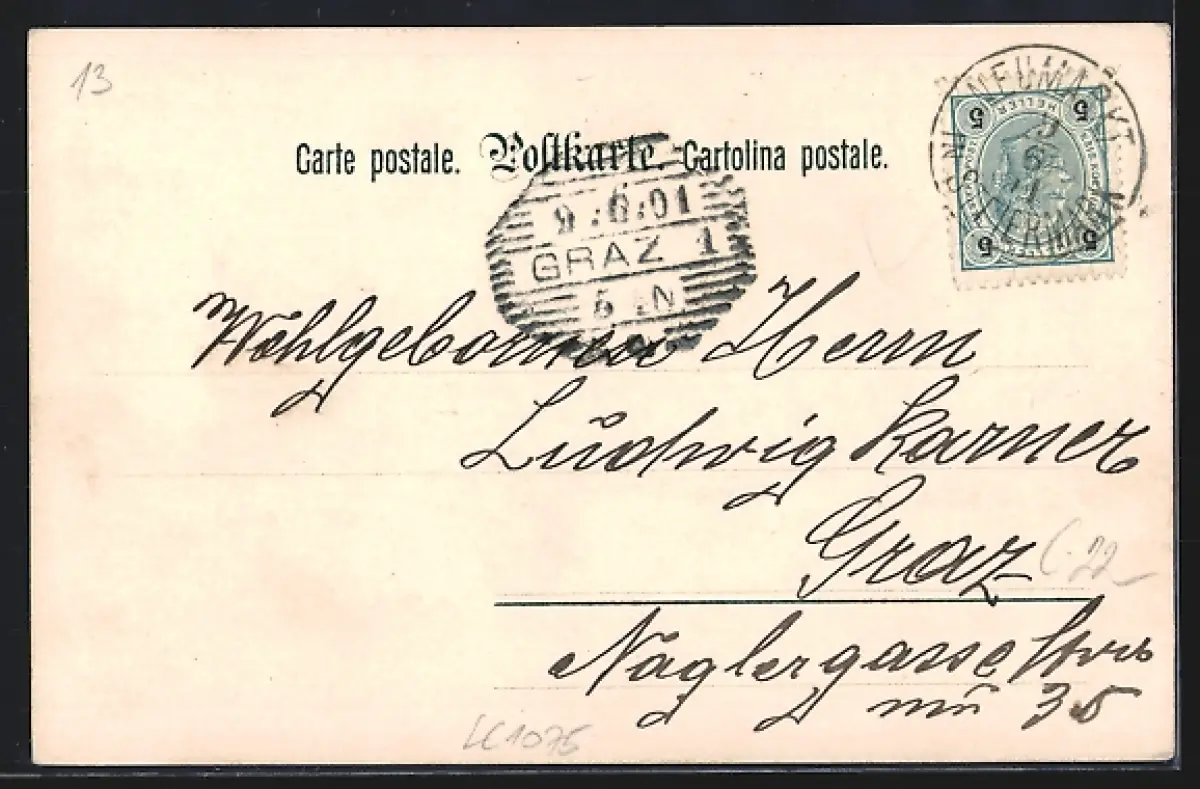 13
Carte postale. Postkarte. Cartolina postale.
NEUMARKT
IN STEIERMARK
5 HELLER 5
5 5
9.6.01
GRAZ 1
5 N
Wohlgebornen Herrn
Ludwig Karner
Graz
C.22
Naglergasse
35
LC1075